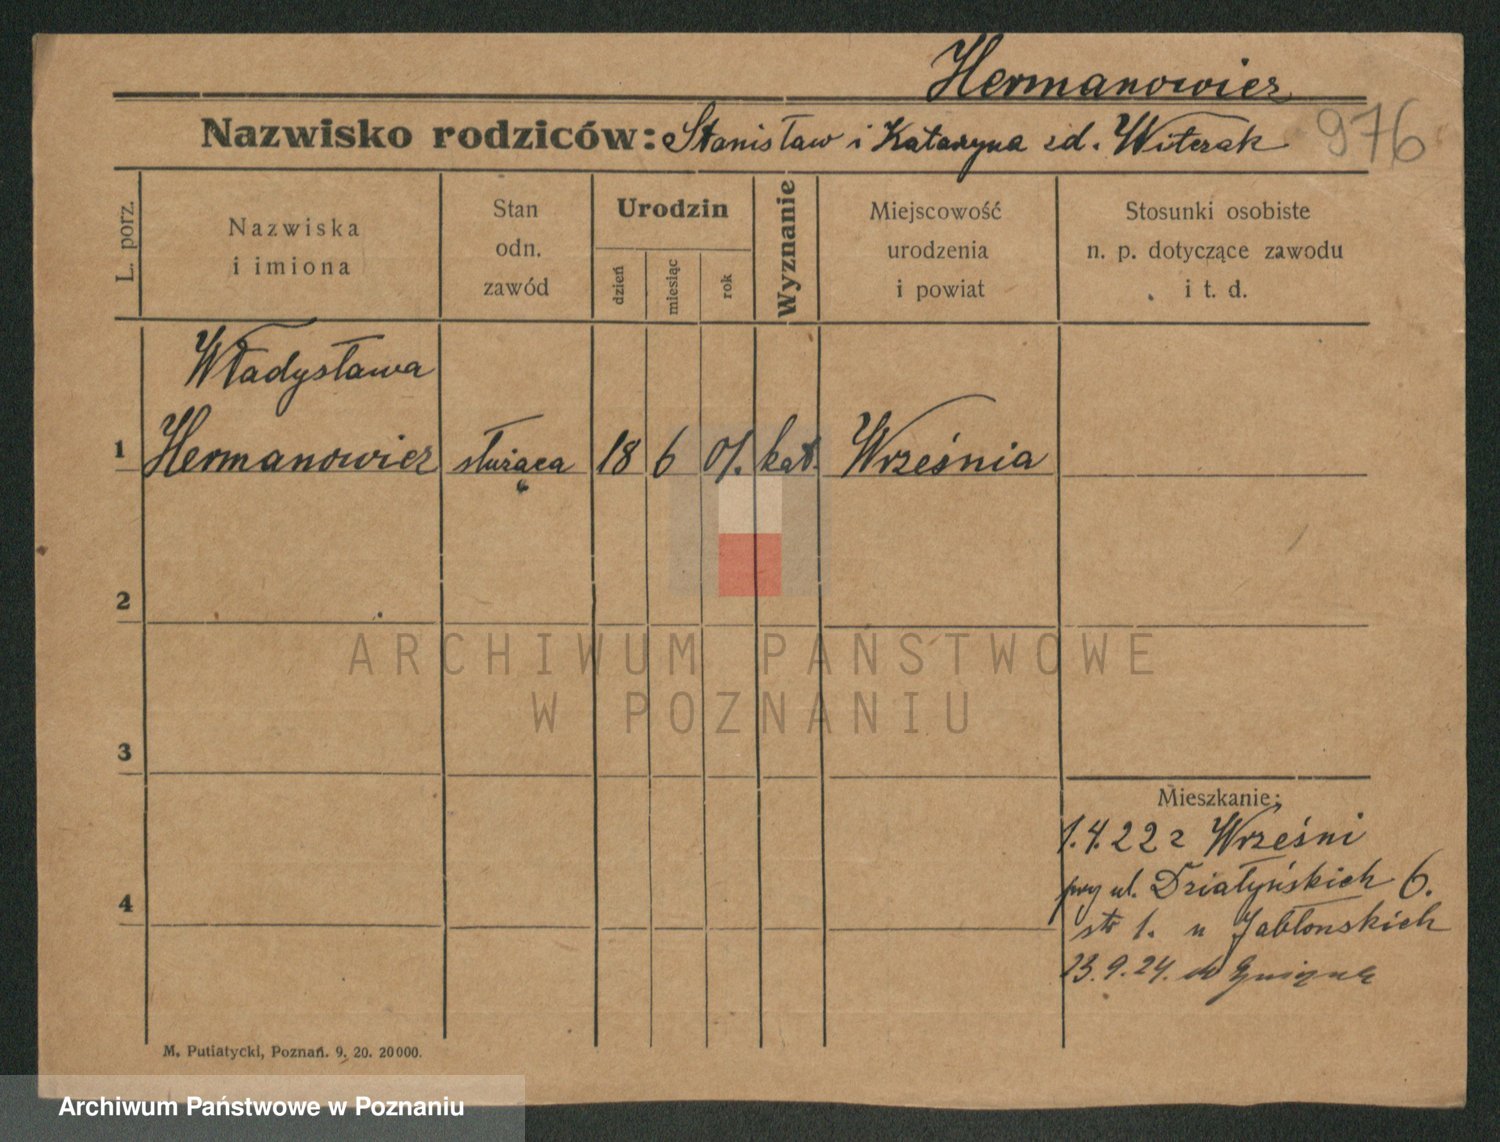 Hermanowicz
Nazwisko rodziców: Stanisław i Katarzyna zd. Witczak 976
L. porz.
Nazwiska
i imiona
Stan
odn.
zawód
Urodzin
dzień
miesiąc
rok
Wyznanie
Miejscowość
urodzenia
i powiat
Stosunki osobiste
n. p. dotyczące zawodu
i t. d.
Władysława
1 Hermanowicz służąca 18 6 01. kat. Września
2
3
4
Mieszkanie:
1.4.22 z Wrześni
przy ul. Działyńskich 6.
str 1. u Jabłonskich
23.9.24. do Gniezna
M. Putiatycki, Poznań. 9. 20. 20000.
ARCHIWUM PAŃSTWOWE
W POZNANIU
Archiwum Państwowe w Poznaniu